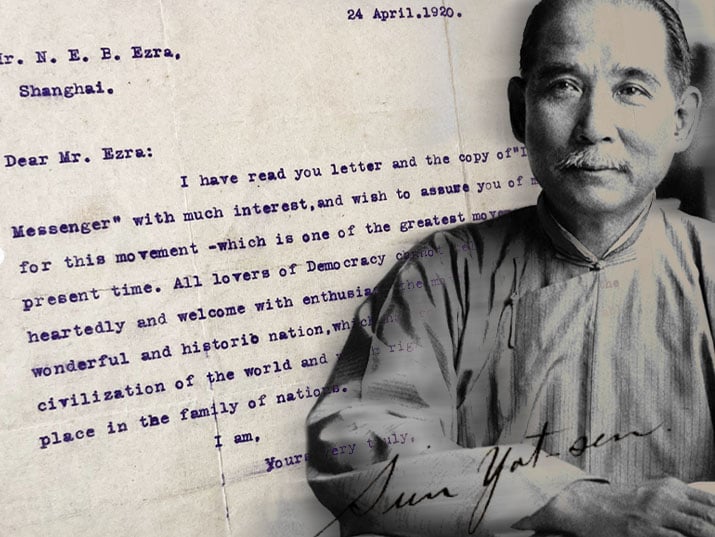 24 April.1920.
Mr. N. E. B. Ezra,
Shanghai.
Dear Mr. Ezra:
I have read you letter and the copy of"I
Messenger" with much interest,and wish to assure you of
for this movement -which is one of the greatest
present time. All lovers of Democracy cannot
heartedly and welcome with
wonderful and historib nation,which
civilization of the world and
place in the family of nations.
I am,
Yours very truly,
Sun Yat-sen.